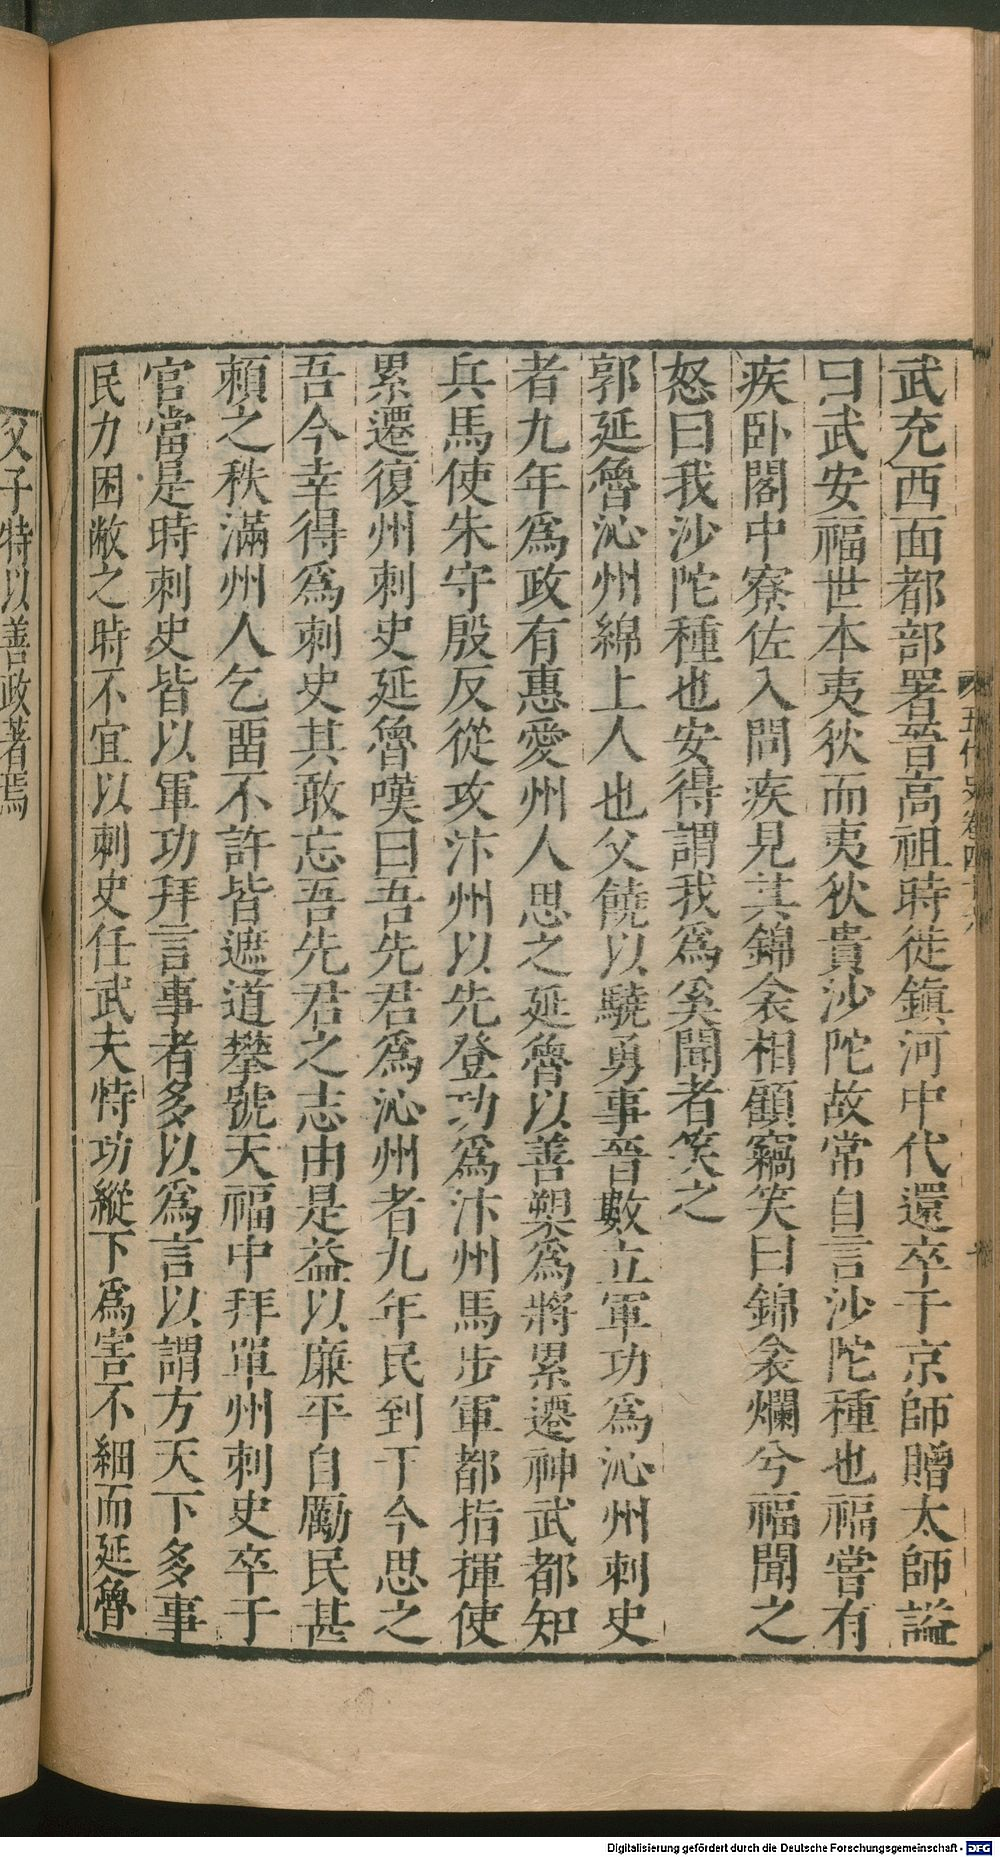 武充西面都部署晉高祖時徙鎮河中代還卒于京師贈太師謚
曰武安福世本夷狄而夷狄貴沙陀故常自言沙陀種也福嘗有
疾卧閣中寮佐入問疾見其錦衾相顧竊笑曰錦衾爛兮福聞之
怒曰我沙陀種也安得謂我爲奚聞者笑之
郭延魯沁州綿上人也父饒以驍勇事晉數立軍功爲沁州刺史
者九年爲政有惠愛州人思之延魯以善槊爲將累遷神武都知
兵馬使朱守殷反從攻汴州以先登功爲汴州馬步軍都指揮使
累遷復州刺史延魯嘆曰吾先君爲沁州者九年民到于今思之
吾今幸得爲刺史其敢忘吾先君之志由是益以廉平自勵民甚
頼之秩滿州人乞畱不許皆遮道攀號天福中拜單州刺史卒于
官當是時刺史皆以軍功拜言事者多以爲言以謂方天下多事
民力困敝之時不宜以刺史任武夫恃功縱下爲害不細而延魯
父子特以善政著焉
五代史卷四十六
Digitalisierung gefördert durch die Deutsche Forschungsgemeinschaft - DFG